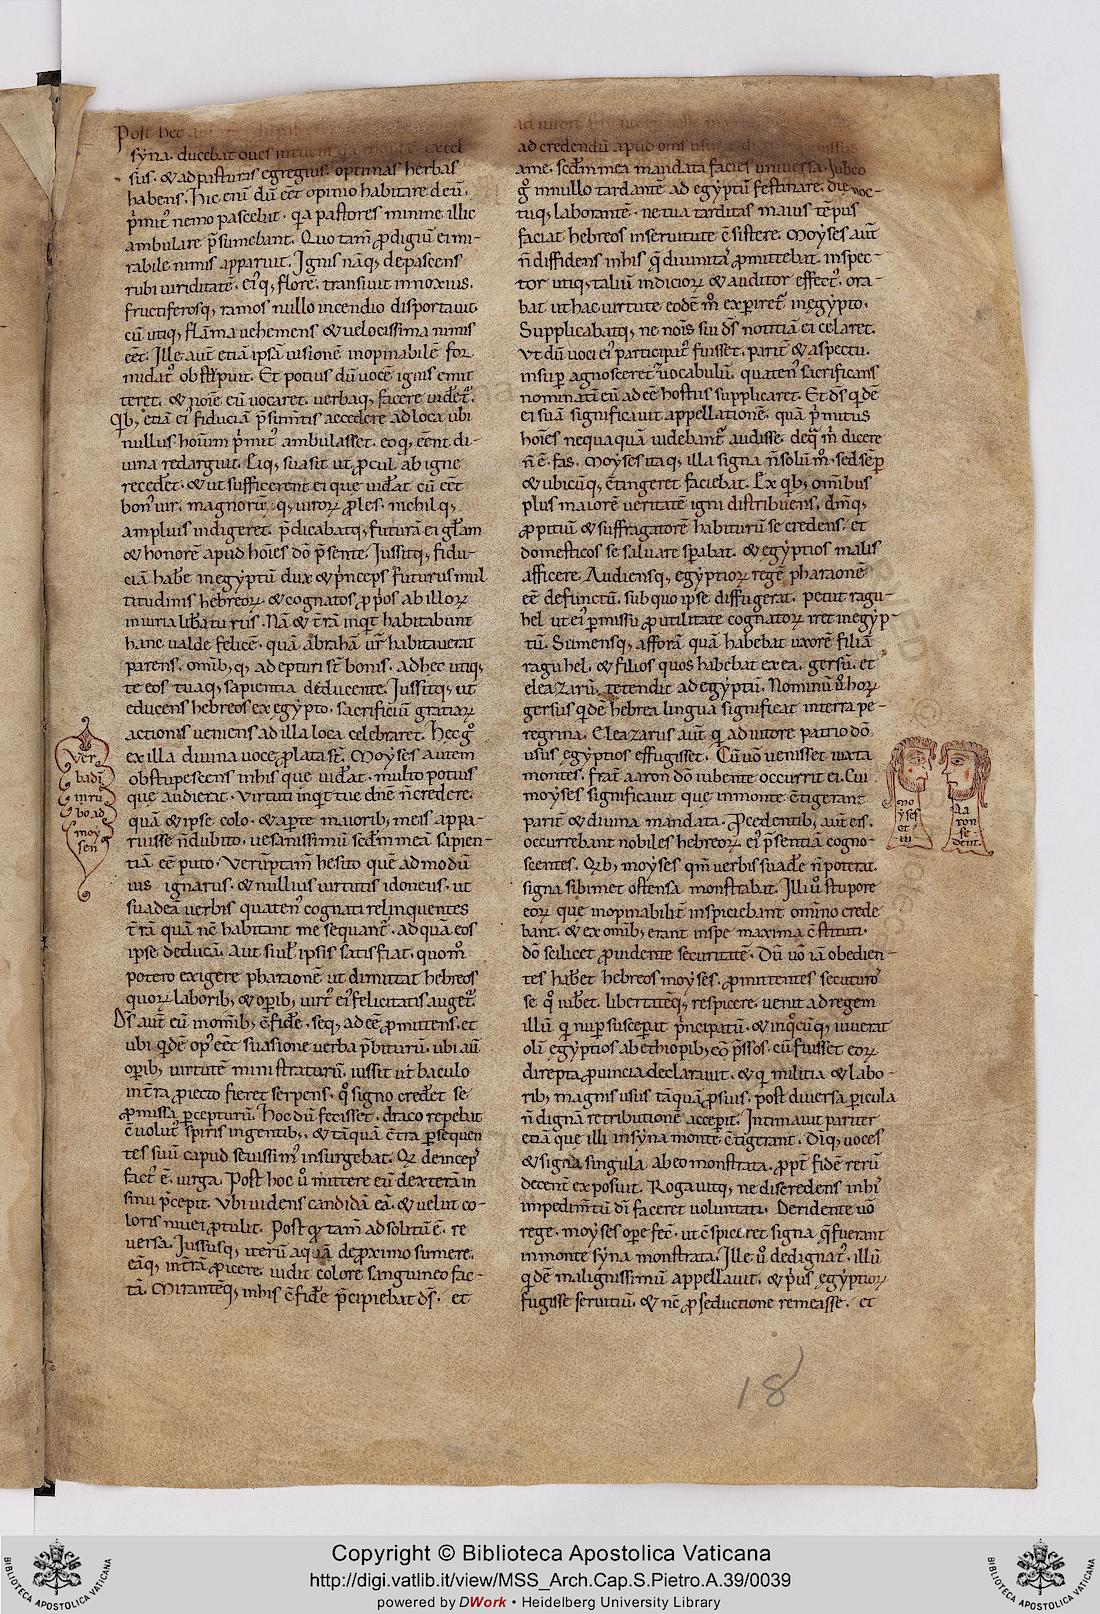 Post hec
syna. ducebat oues
sus. & ad pasturas egregius. optimas herbas
habens. Hic eni dū eēt opinio habitare deū.
p̄mit᷒ nemo pascebat. qa pastores minime illic
ambulare p̄sumebant. Quo tam̄ p̄digiū ei mi-
rabile nimis apparuit. Ignis nāq; depascens
rubi uiriditatē. ei᷒q; florē. transiuit innoxius.
fructiferosq; ramos nullo incendio disportauit.
cū utiq; flāma uehemens & uelocissima nimis
eēt. Ille aut̄ etiā ipsā uisionē inopinabilē for
midat᷒ obstipuit. Et potius dū uocē ignis emit
teret. & noīe eū uocaret. uerbaq; facere uidet᷒.
Qb; etiā ei᷒ fiduciā p̄sumtis accedere ad loca ubi
nullus hoīum p̄mit᷒ ambulasset. eoq; eēnt di-
uina redarguit. Eiq; suasit ut p̄cul ab igne
recedet. & ut sufficerent ei que uid̄at cū eēt
bon᷒ uir. magnorū q; uiroꝝ p̄les. nichilq;
amplius indigeret. p̄dicabatq; futurā ei gl̄am
& honorē apud hoīes dō p̄sente. Iussitq; fidu-
ciā habe in egyptū dux & p̄nceps futurus mul
titudinis hebreoꝝ. & cognatos p̄p̄os ab illoꝝ
iniuria lib̄aturus. Nā & t̄rā inqt habitabunt
hanc ualde felicē. quā abrahā ur̄ habitauerat
parens. omīb; q; adepturi st̄ bonis. ad hec utiq;
te eos tuaq; sapientia deducente. Iussitq; ut
educens hebreos ex egypto. sacrificiū gratiaꝝ
actionis ueniens ad illa loca celebraret. Hec g᷒
ex illa diuina uoce p̄lata st̄. Moyses autem
obstupescens in his que uid̄at. multo potius
que audierat. Virtuti inqt tue dn̄e n̄ credere.
quā & ipse colo. & aparte maiorib; meis appa-
ruisse n̄ dubito. uesanissimū scd̄m meā sapien-
tiā eē puto. Verūptam̄ hesito quē admodū
uis ignarus. & nullius uirtutis idoneus. ut
suadeā uerbis quaten᷒ cognati relinquentes
t̄rā quā nc̄ habitant me sequant᷒. ad quā eos
ipse deducā. Aut si uł ipsis satisfiat. quom̊
potero exigere pharaonē ut dimittat hebreos
quoꝝ laborib; & op̄ib; uirt᷒ ei᷒ felicitatis auget᷒.
Ds aut̄ eū in omīb; c̄fide. seq; adeē p̄mittens. et
ubi qdē op᷒ eēt suasione uerba p̄biturū. ubi aū
op̄ib; uirtutē ministraturū. iussit ut baculo
in t̄ra p̄iecto fieret serpens. q̊ signo credet se
p̄missa p̄cepturū. Hoc dū fecisset. draco repebat
c̄uolut᷒ sp̄iris ingentib; & tāquā c̄tra p̄sequen
tes suū capud seuissim᷒ insurgebat. Q᷒ deincep᷒
fact᷒ ē. uirga. Post hoc ů mittere eū dexterā in
sinū p̄cepit. Vbi uidens candidā eā. & uelut co-
loris niuei p̄tulit. Post q᷒ tam̄ ad solitū ē. re
uersa. Iussusq; iterū aquā de p̄ximo sumere.
eāq; in t̄rā p̄icere. uidit colorē sanguineo fac-
tā. Mirantēq; in his c̄fide p̄cipiebat ds̄. et
Ver
badn̄i
in ru
bo ad
moy
sen
ad credendū apud
ame. scd̄m mea mandata facies uniuersa. Iubeo
g᷒ in nullo tardantē ad egyptū festinare. die noc-
tuq; laborantē. ne tua tarditas maius tēpus
faciat hebreos in seruitute c̄sistere. Moyses aut̄
n̄ diffidens in his q̄ diuinitat᷒ p̄mittebat. inspec-
tor utiq; taliū indicioꝝ & auditor effect᷒. ora-
bat ut hac uirtute eodē m̊ experiret᷒ in egypto.
Supplicabatq; ne nōis sui ds̄ notitiā ei celaret.
Vt dū uoci ei᷒ participat᷒ fuisset. parit᷒ & aspectu.
insup̄ agnosceret uocabulū. quaten᷒ sacrificans
nominatī eū adeē hostus supplicaret. Et ds̄ qdē
ei suā significauit appellationē. quā p̄mitus
hoīes nequaquā uidebant᷒ audisse. de q̄ m̄ dicere
n̄ ē. fas. Moyses itaq; illa signa n̄ solū m̊. sed semp̄
& ubicūq; c̄tingeret faciebat. Ex qb; omībus
plus maiorē ueritatē igni distribuens. dm̄q;
p̄pitiū & suffragatorē habiturū se credens. et
domesticos se saluare sp̄abat. & egyptios malis
afficere. Audiensq; egyptioꝝ regē pharaonē
eē defunctū. sub quo ipse diffugerat. petiit ragu-
hel ut ei᷒ p̄missu p̄ utilitate cognatoꝝ iret in egyp-
tū. Sumensq; afforā quā habebat uxorē filiā
raguhel. & filios quos habebat ex ea. gersū. et
eleazarū. tetendit ad egyptū. Nominū ů hoꝝ
gersus qdē hebrea lingua significat in terra pe-
regrina. Eleazarus aut̄. q᷒ adiutore patrio dō
usus egyptios effugisset. Cū uō uenisset iuxta
montes. frat᷒ aaron dō iubente occurrit ei. Cui
moyses significauit que in monte c̄tigerant
parit᷒ & diuina mandata. P̄cedentib; aut̄ eis.
occurrebant nobiles hebreoꝝ ei᷒ p̄sentiā cogno-
scentes. Qb; moyses qm̄ uerbis suade n̄ poterat.
signa sibimet ostensa monstrabat. Illi ů stupore
eoꝝ que inopinabilit᷒ inspiciebant omīno crede
bant. & ex omīb; erant in spe maxima c̄stituti.
dō scilicet p̄uidente securitatē. Dū uō iā obedien-
tes hab̄et hebreos moyses. p̄mittentes secuturo᷒
se q̊ iub̄et. libertatēq; respicere. uenit ad regem
illū q᷒ nup̄ suscep̄at p̄ncipatū. & in q̊cūq; iuuerat
olī egyptios ab ethiopib; cō p̄ssos. cū fuisset eoꝝ
direpta p̄uincia declarauit. & q᷒ militia & labo-
rib; magnis usus tāquā p̄ suis. post diuersa picula
n̄ dignā retributionē accepit. Intimauit pariter
etiā que illi in syna monte c̄tigerant. Diq; uoces
& signa singula ab eo monstrata. p̄pt̄ fidē rerū
decent᷒ exposuit. Rogauitq; ne discredens in hi᷒
impedim̄tū di faceret uoluntati. Deridente uō
rege. moyses ope fec̄. ut c̄spiceret signa q̄ fuerant
in monte syna monstrata. Ille ů dedignat᷒. illū
qdē malignissimū appellauit. & p̄us egyptioꝝ
fugisse seruitiū. & nc̄ p̄ seductione remeasse. et
mo
yses
et
a
ron
se
dent.
18
Copyright © Biblioteca Apostolica Vaticana
http://digi.vatlib.it/view/MSS_Arch.Cap.S.Pietro.A.39/0039
powered by DWork • Heidelberg University Library
BIBLIOTECA APOSTOLICA VATICANA
BIBLIOTECA APOSTOLICA VATICANA